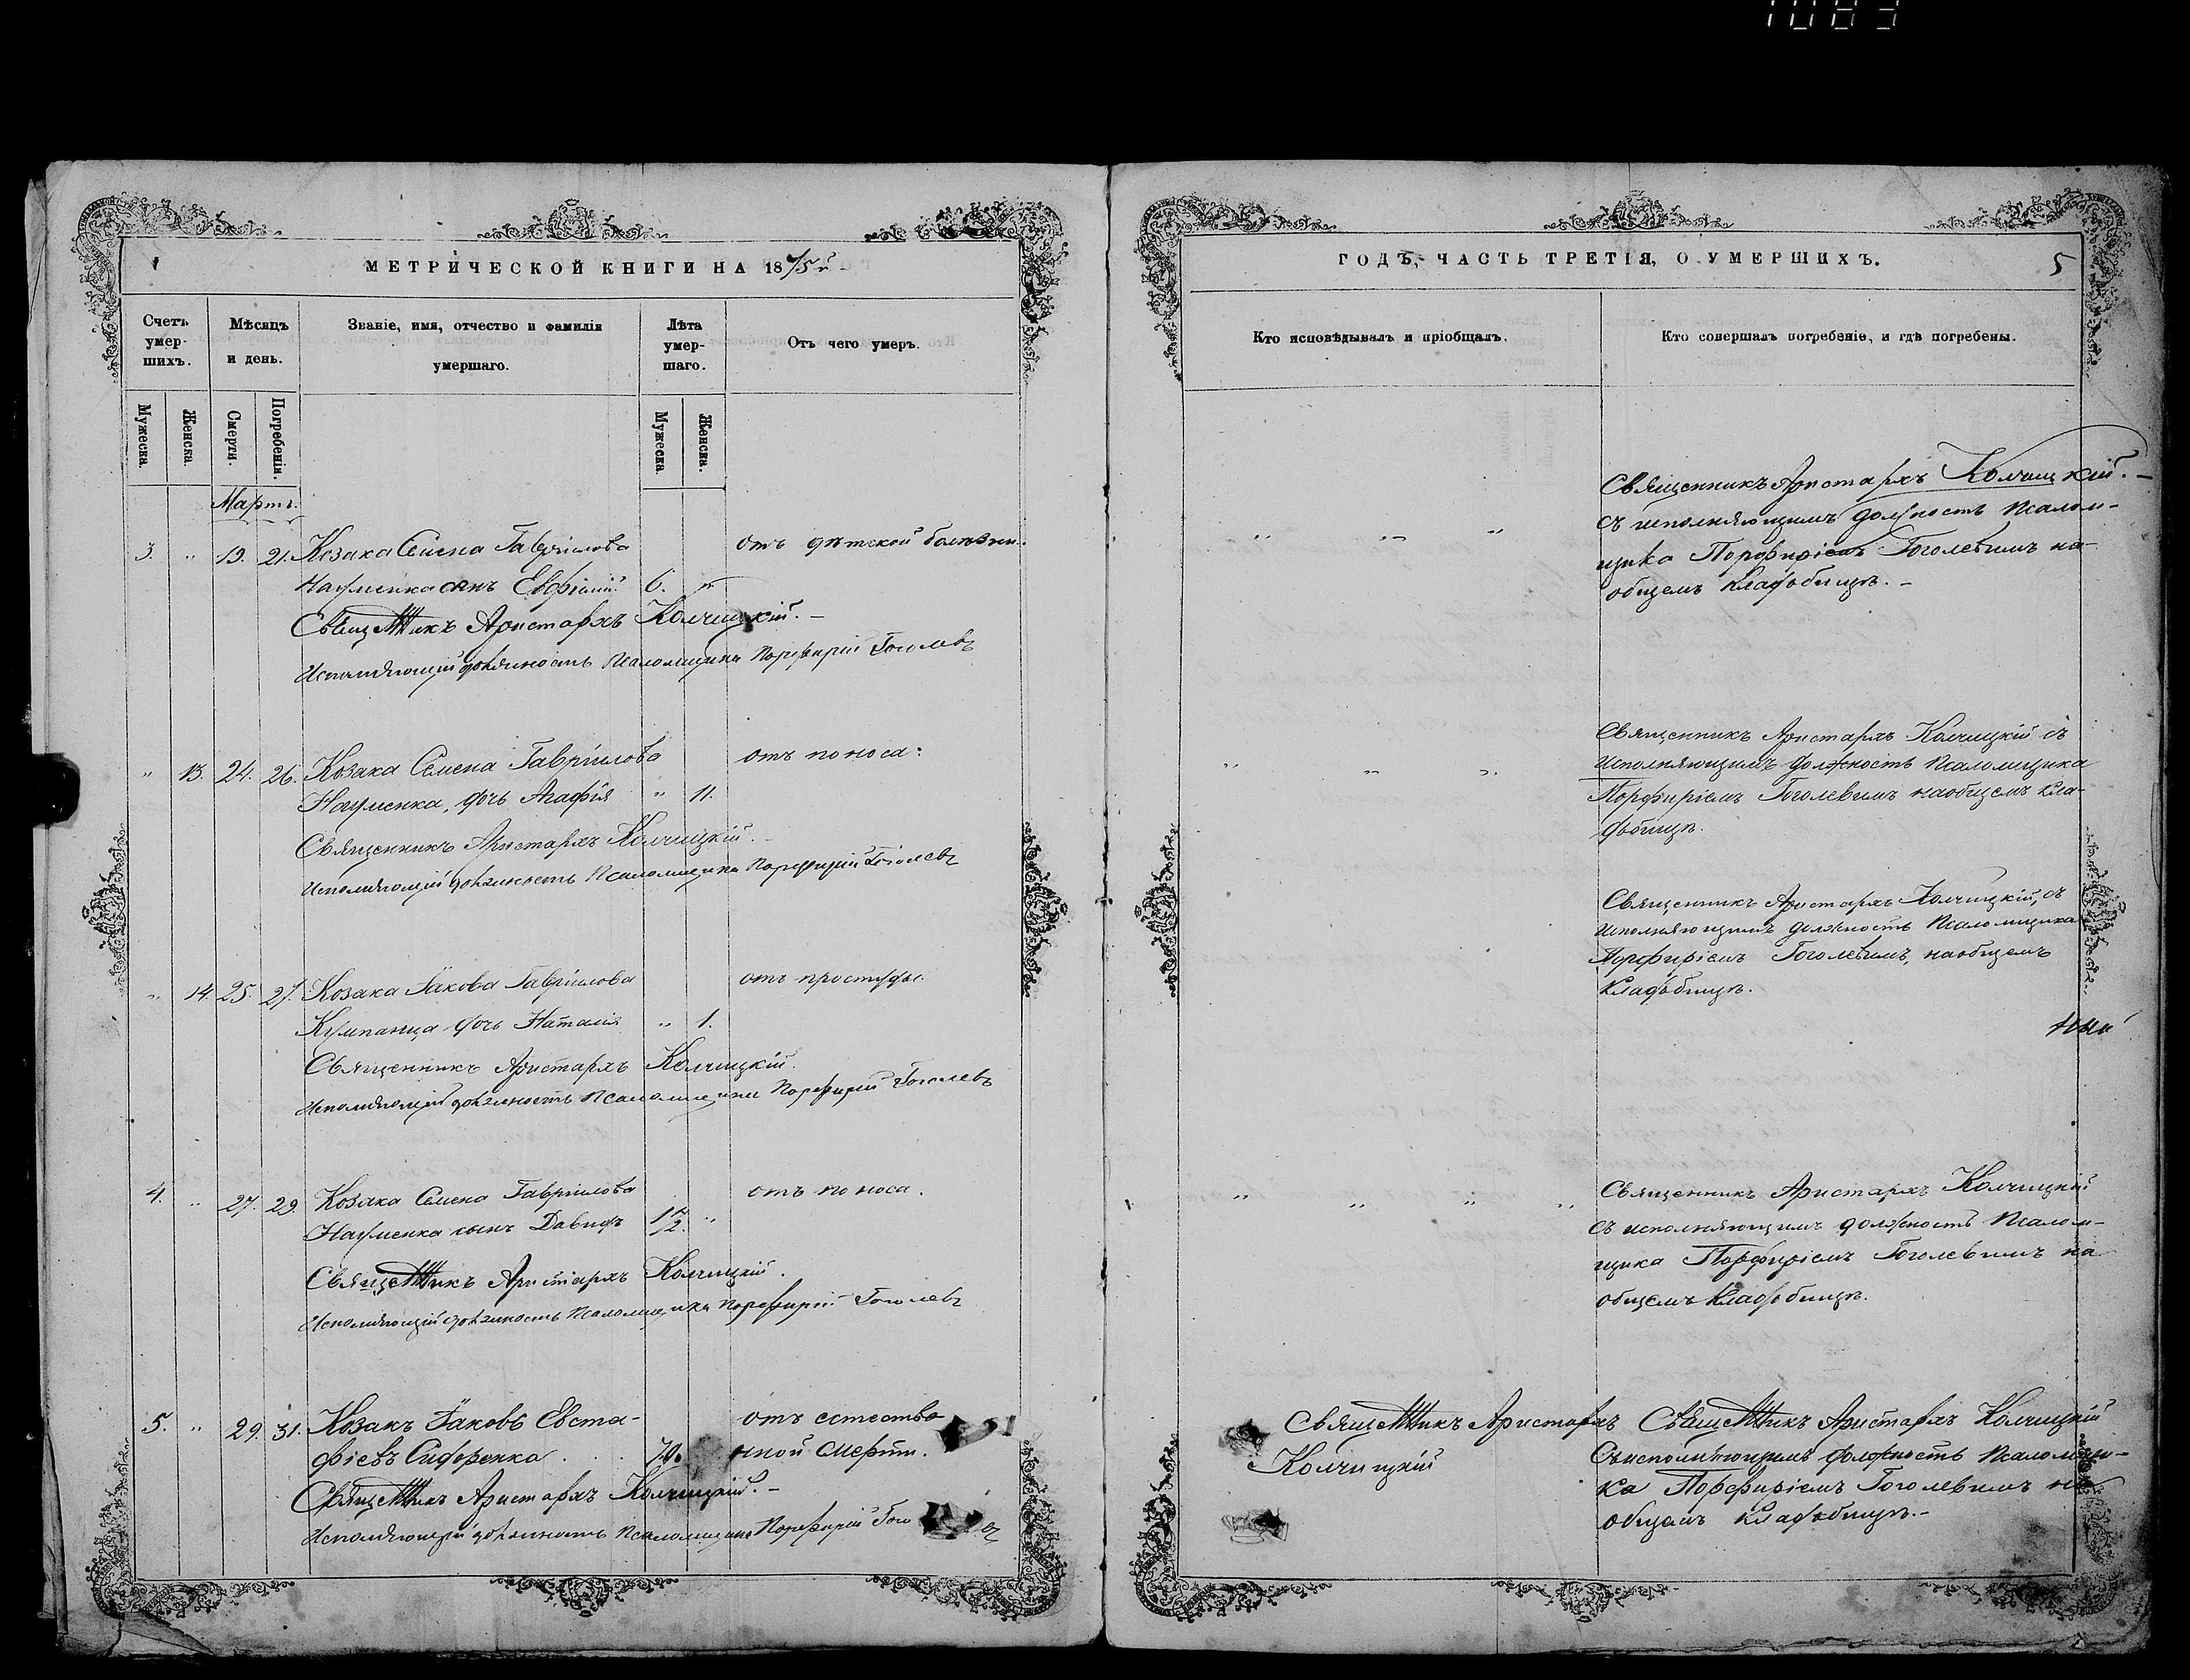 1083
МЕТРИЧЕСКОЙ КНИГИ НА 1875й
Счетъ умер-шихъ.
Мѣсяцъ и день.
Званіе, имя, отчество и фамилія умершаго.
Лѣта умер-шаго.
Отъ чего умеръ.
Мужеска.
Женска.
Смерти.
Погребенія.
Мужеска
Женска.
Мартъ.
3. " 19. 21. Козака Семена Гавріилова отъ дѣтской болѣзни.
Науменка сынъ Евфимій 6. "
Священникъ Аристархъ Колчицкій. –
Исполняющій должность Псаломщика Порфирій Гоголевъ
" 13. 24. 26. Козака Семена Гавріилова отъ поноса:
Науменка, дочь Агафія " 11.
Священникъ Аристархъ Колчицкій. –
Исполняющій должность Псаломщика Порфирій Гоголевъ
" 14. 25. 27. Козака Іакова Гавріилова отъ простуды.
Кумпанца дочь Наталія " 1.
Священникъ Аристархъ Колчицкій.
Исполняющій должность Псаломщика Порфирій Гоголевъ
4. " 27. 29. Козака Семена Гавріилова отъ поноса.
Науменка сынъ Давидъ 1/2. "
Священникъ Аристархъ Колчицкій.
Исполняющій должность Псаломщика Порфирій Гоголевъ
5. " 29. 31. Козакъ Іаковъ Евста- отъ естестве
фіевъ Сидоренко. 70. нной смерти.
Священникъ Аристархъ Колчицкій. –
Исполняющій должность Псаломщика Порфирій Гого въ
ГОДЪ, ЧАСТЬ ТРЕТІЯ, О УМЕРШИХЪ.
5
Кто исповѣдывалъ и пріобщалъ.
Кто совершалъ погребеніе, и гдѣ погребены.
Священникъ Аристархъ Колчицкій. –
съ исполняющимъ должность Псалом-
щика Порфиріемъ Гоголевымъ на
общемъ кладбищѣ. –
Священникъ Аристархъ Колчицкій съ
исполняющимъ должность Псаломщика
Порфиріемъ Гоголевымъ на общемъ кла-
дбищѣ.
Священникъ Аристархъ Колчицкій, съ
исполняющимъ должность Псаломщика
Порфиріемъ Гоголевымъ, на общемъ
кладбищѣ.
Священникъ Аристархъ Колчицкій
съ исполняющимъ должность Псалом-
щика Порфиріемъ Гоголевымъ на
общемъ кладбищѣ.
Священникъ Аристархъ
Колчицкій
Священникъ Аристархъ Колчицкій
Съ исполняющимъ должность Псаломщи-
ка Порфиріемъ Гоголевымъ на
общемъ кладбищѣ. –